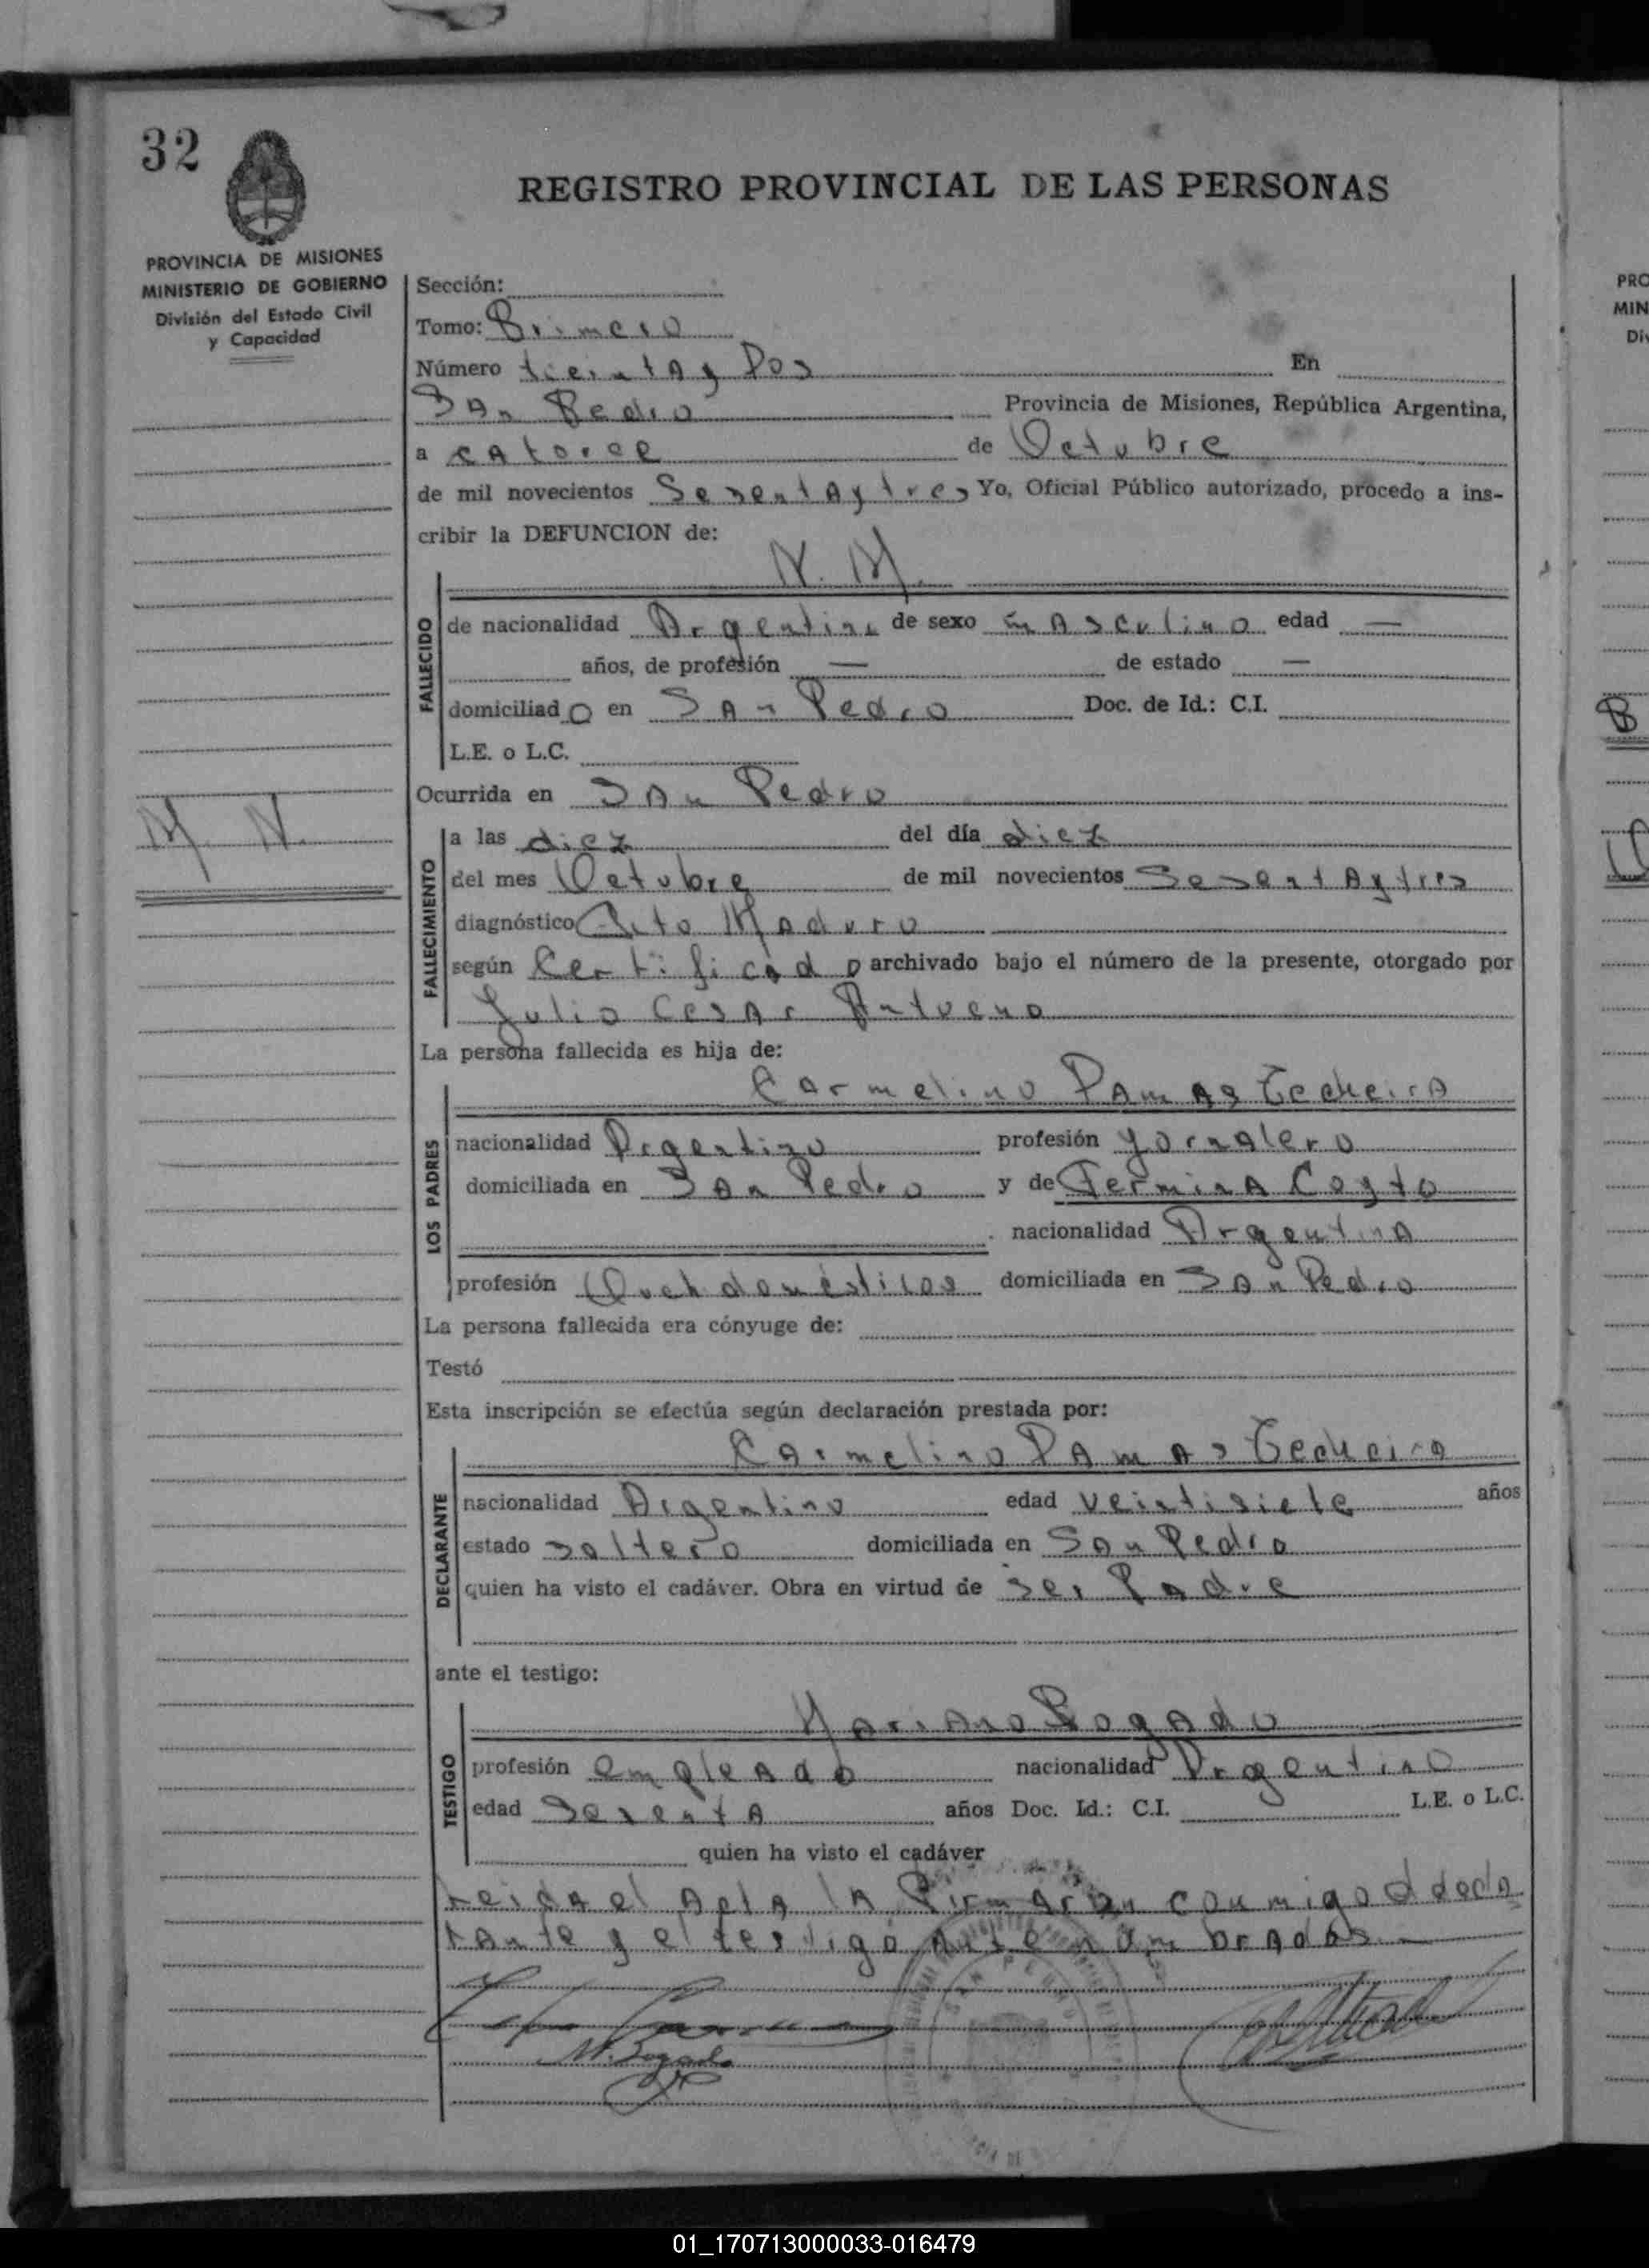 32
REGISTRO PROVINCIAL DE LAS PERSONAS
PROVINCIA DE MISIONES
MINISTERIO DE GOBIERNO
División del Estado Civil
y Capacidad
Sección:
Tomo: Primero
Número treinta y Dos En
San Pedro Provincia de Misiones, República Argentina,
a catorce de Octubre
de mil novecientos Sesentaytres Yo, Oficial Público autorizado, procedo a ins-
cribir la DEFUNCION de:
N. M.
FALLECIDO
de nacionalidad Argentina de sexo masculino edad —
años, de profesión — de estado —
domiciliado en San Pedro Doc. de Id.: C.I.
L.E. o L.C.
Ocurrida en San Pedro
M. N.
FALLECIMIENTO
a las diez del día diez
del mes Octubre de mil novecientos Sesentaytres
diagnóstico Feto Maduro
según Certificado archivado bajo el número de la presente, otorgado por
Julio Cesar
La persona fallecida es hija de:
LOS PADRES
Carmelino Damas
nacionalidad Argentino profesión Jornalero
domiciliada en San Pedro y de Fermina
nacionalidad Argentina
profesión domésticos domiciliada en San Pedro
La persona fallecida era cónyuge de:
Testó
Esta inscripción se efectúa según declaración prestada por:
DECLARANTE
Carmelino Damas
nacionalidad Argentino edad veintisiete años
estado soltero domiciliada en San Pedro
quien ha visto el cadáver. Obra en virtud de ser Padre
ante el testigo:
TESTIGO
Mariano Bogado
profesión empleado nacionalidad Argentino
edad años Doc. Id.: C.I. L.E. o L.C.
quien ha visto el cadáver
Leida el Acta la Firmaron conmigo el decla
rante y el testigo
M. Bogado
PRO
MIN
Div
01_170713000033-016479